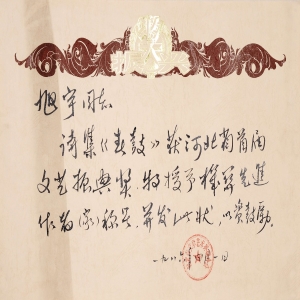 旭宇同志
诗集《春鼓》获河北省首届
文艺振兴奖，特授予模范先進
作者(家)称号，并发此状，以资鼓励。
一九八六年 月 一日